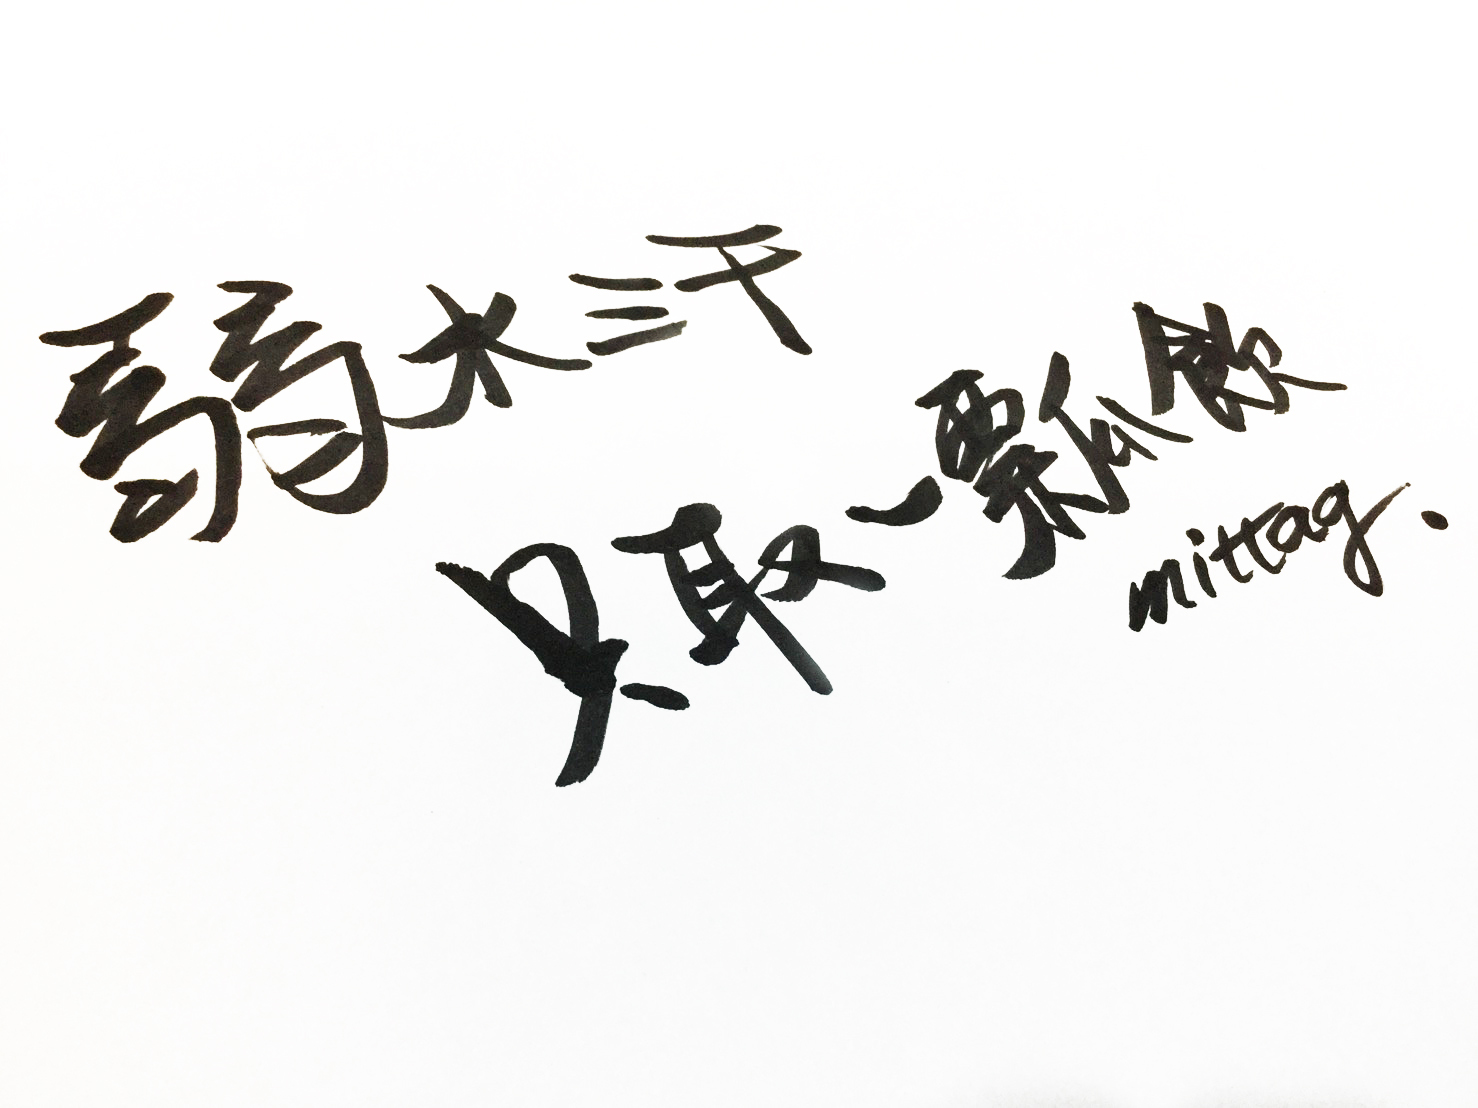 弱水三千
只取一瓢飲
mittag.